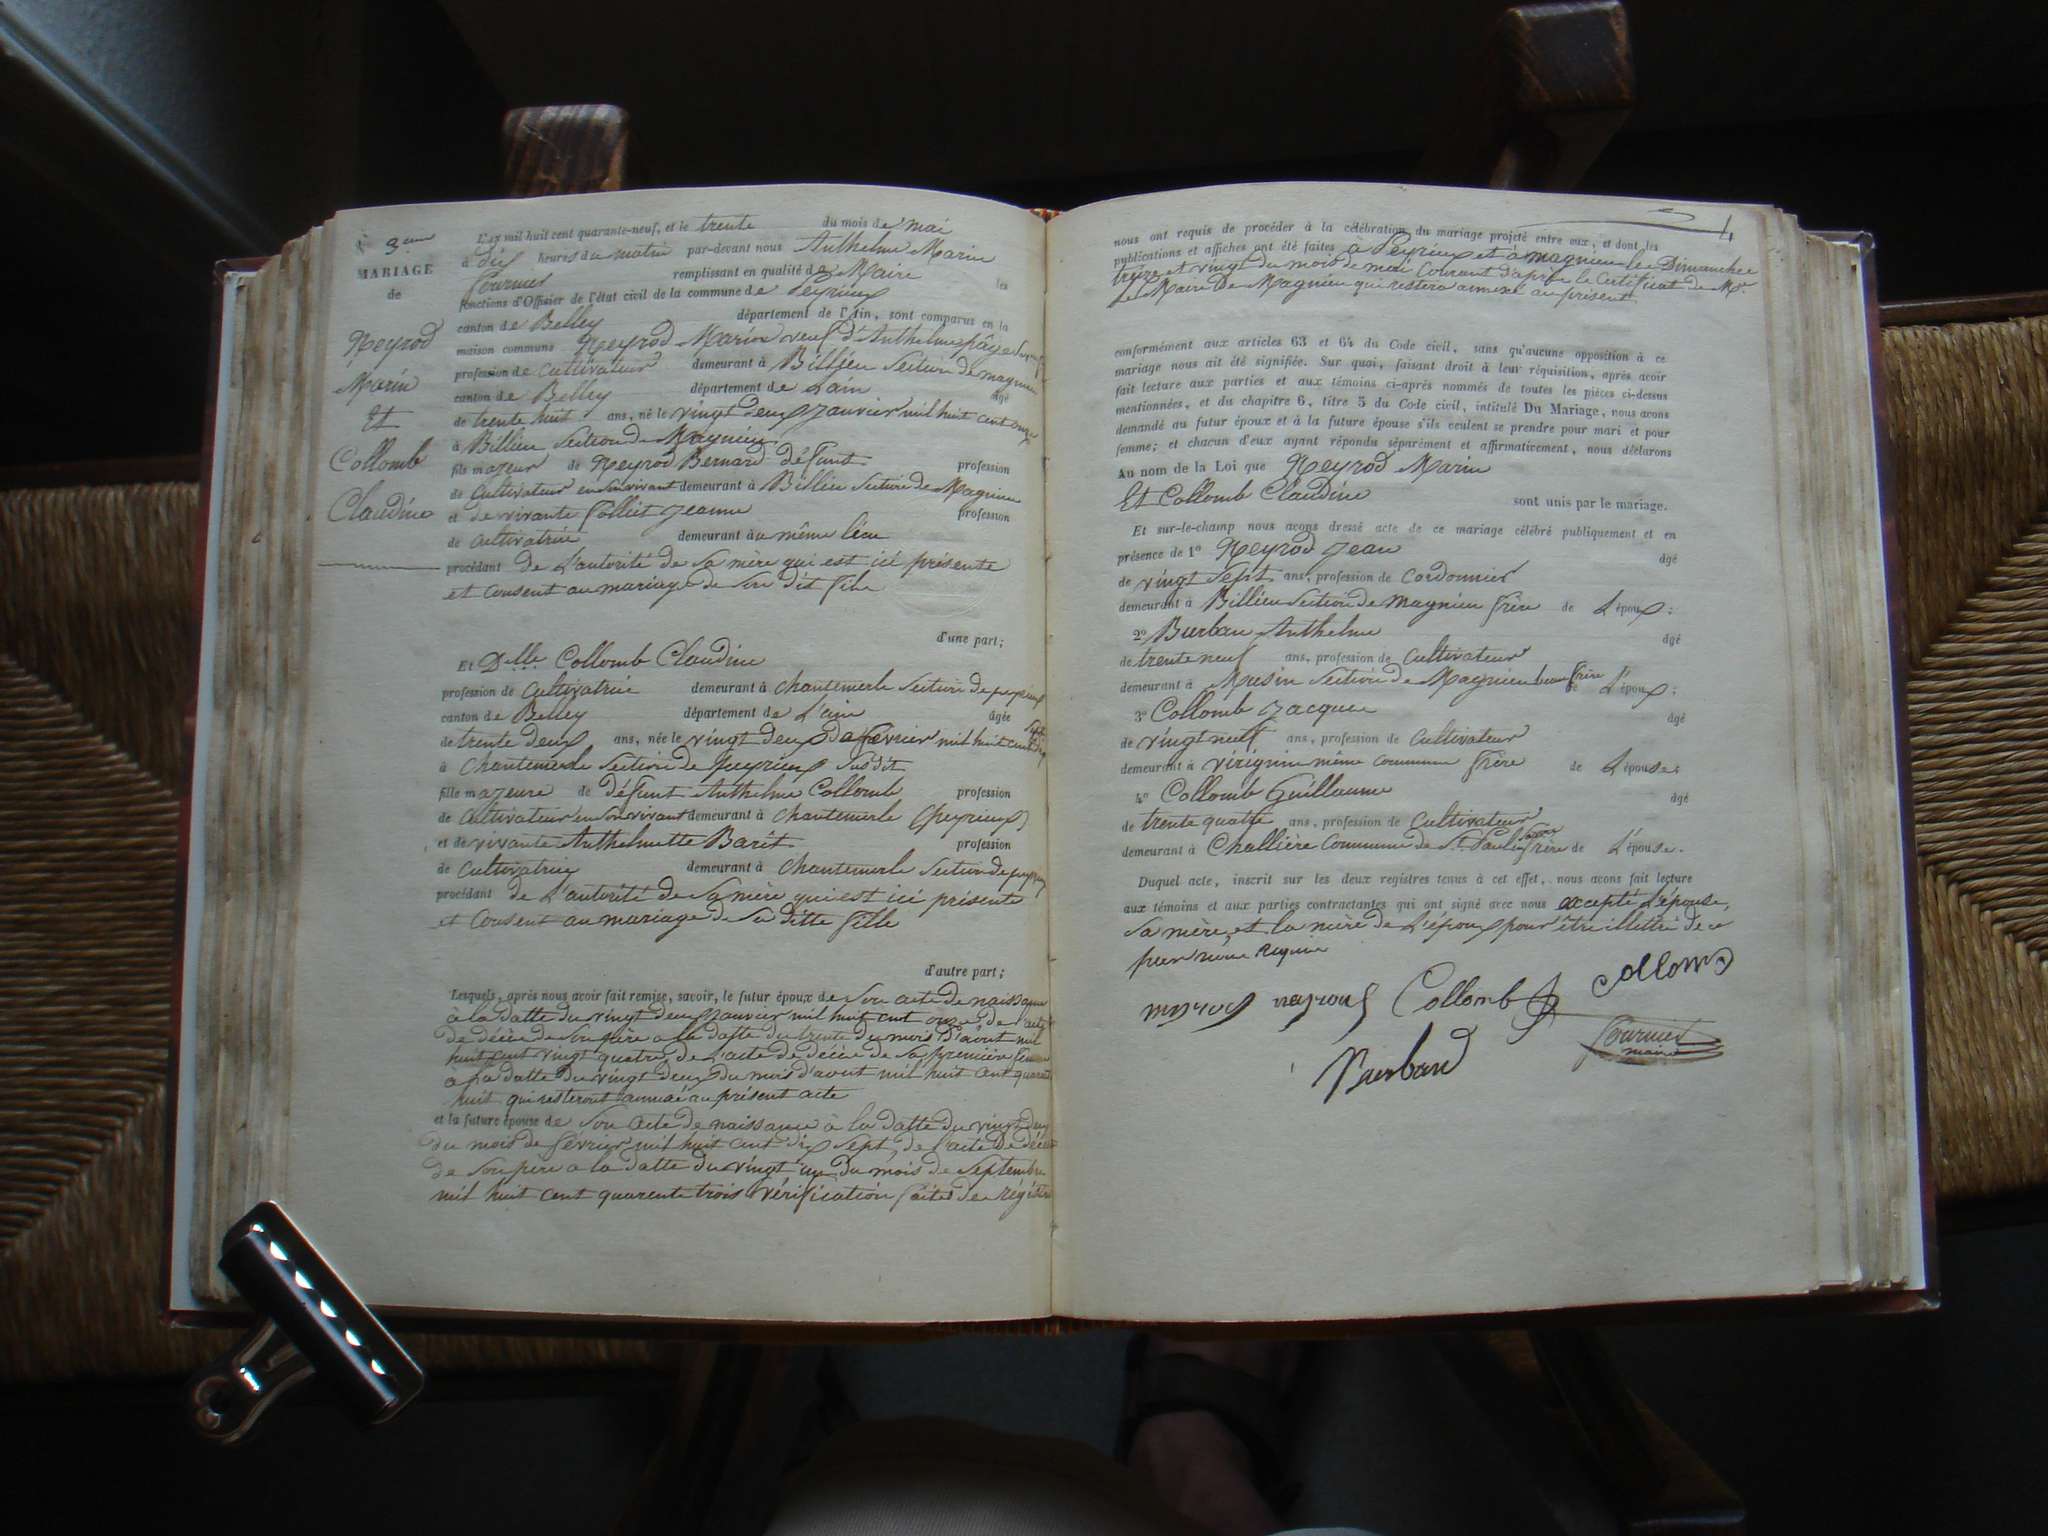 3eme
MARIAGE
de
Neyrod
Marin
Et
Collomb
Claudine
L'an mil huit cent quarante-neuf, et le trente du mois de mai
à dix heures du matin par-devant nous Anthelme Marin
Fournier remplissant en qualité de Maire les
fonctions d'Officier de l'état civil de la commune de Peyrieux
canton de Belley département de l'Ain, sont comparus en la
maison commune Neyrod Marin veuf d'Anthelme
profession de cultivateur demeurant à Billieu Section de magnieu
canton de Belley département de Lain âgé
de trente huit ans, né le vingt deux Janvier mil huit cent onze
à Billieu Section de Magnieu
fils majeur de Neyrod Bernard défunt profession
de Cultivateur en son vivant demeurant à Billieu Section de Magnieu
et de vivante Jeanne profession
de Cultivatrice demeurant au même lieu
procédant de L'autorité de Sa mère qui est ici présente
et consent au mariage de Son dit fils
d'une part;
Et Delle Collomb Claudine
profession de Cultivatrice demeurant à chantemerle Section de peyrieux
canton de Belley département de L'ain âgée
de trente deux ans, née le vingt deux de février mil huit cent dix sept
à Chantemerle Section de peyrieux Susdit
fille majeure de défunt Anthelme Collomb profession
de Cultivateur en Son vivant demeurant à Chantemerle (peyrieux)
et de vivante Anthelmette Barit profession
de Cultivatrice demeurant à chantemerle Section de peyrieux
procédant de L'autorité de Sa mère qui est ici présente
et Consent au mariage de Sa ditte fille
d'autre part;
Lesquels, après nous avoir fait remise, savoir, le futur époux de Son acte de naissance
à la datte du vingt deux Janvier mil huit cent onze de l'acte
de décès de Son père a la datte du trente du mois d'avout mil
huit cent vingt quatre, de L'acte de décès de Sa première femme
à La datte du vingt deux du mois d'avout mil huit cent quarante
huit qui resteront annexé au présent acte
et la future épouse de Son acte de naissance à la datte du vingt deux
du mois de février mil huit cent dix Sept, de l'acte de décès
de Son père a la datte du vingt un du mois de Septembre
mil huit cent quarente trois vérification faites des régistres
4
nous ont requis de procéder à la célébration du mariage projeté entre eux, et dont les
publications et affiches ont été faites à Peyrieux et à magnieu les Dimanches
treize et vingt du mois de mai courant d'après le Certificat de Mr.
le Maire de Magnieu qui restera annexé au présent
conformément aux articles 63 et 64 du Code civil, sans qu'aucune opposition à ce
mariage nous ait été signifiée. Sur quoi, faisant droit à leur réquisition, après avoir
fait lecture aux parties et aux témoins ci-après nommés de toutes les pièces ci-dessus
mentionnées, et du chapitre 6, titre 5 du Code civil, intitulé Du Mariage, nous avons
demandé au futur époux et à la future épouse s'ils veulent se prendre pour mari et pour
femme; et chacun d'eux ayant répondu séparément et affirmativement, nous déclarons
Au nom de la Loi que Neyrod Marin
Et Collomb Claudine sont unis par le mariage.
Et sur-le-champ nous avons dressé acte de ce mariage célébré publiquement et en
présence de 1o Neyrod Jean âgé
de vingt Sept ans, profession de Cordonnier
demeurant à Billieu Section de Magnieu frère de L'époux;
2o Burban Anthelme âgé
de trente neuf ans, profession de Cultivateur
demeurant à Musin Section de Magnieu beau frère de L'époux;
3o Collomb Jacques âgé
de vingt neuf ans, profession de Cultivateur
demeurant à virignin même commune frère de L'épouse;
4o Collomb Guillaume âgé
de trente quatre ans, profession de Cultivateur
demeurant à Challière Commune de St Paul frère de L'épouse.
Duquel acte, inscrit sur les deux registres tenus à cet effet, nous avons fait lecture
aux témoins et aux parties contractantes qui ont signé avec nous excepté L'épouse,
Sa mère, et la mère de L'époux pour être illettré de ce
Requise
neyrod Collomb Collomb
Burband
Fournier
maire